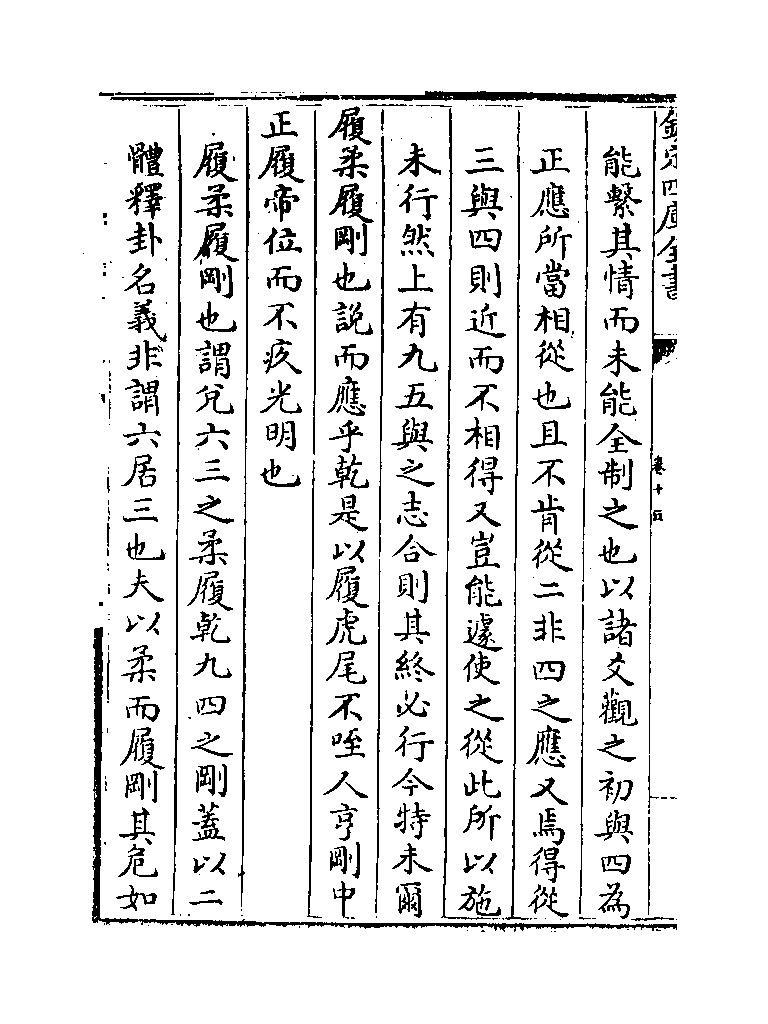 欽定四庫全書
卷十五
能繫其情而未能全制之也以諸爻觀之初與四為
正應所當相從也且不肯從二非四之應又焉得從
三與四則近而不相得又豈能遽使之從此所以施
未行然上有九五與之志合則其終必行今特未爾
履柔履剛也說而應乎乾是以履虎尾不咥人亨剛中
正履帝位而不疚光明也
履柔履剛也謂兌六三之柔履乾九四之剛蓋以二
體釋卦名義非謂六居三也夫以柔而履剛其危如